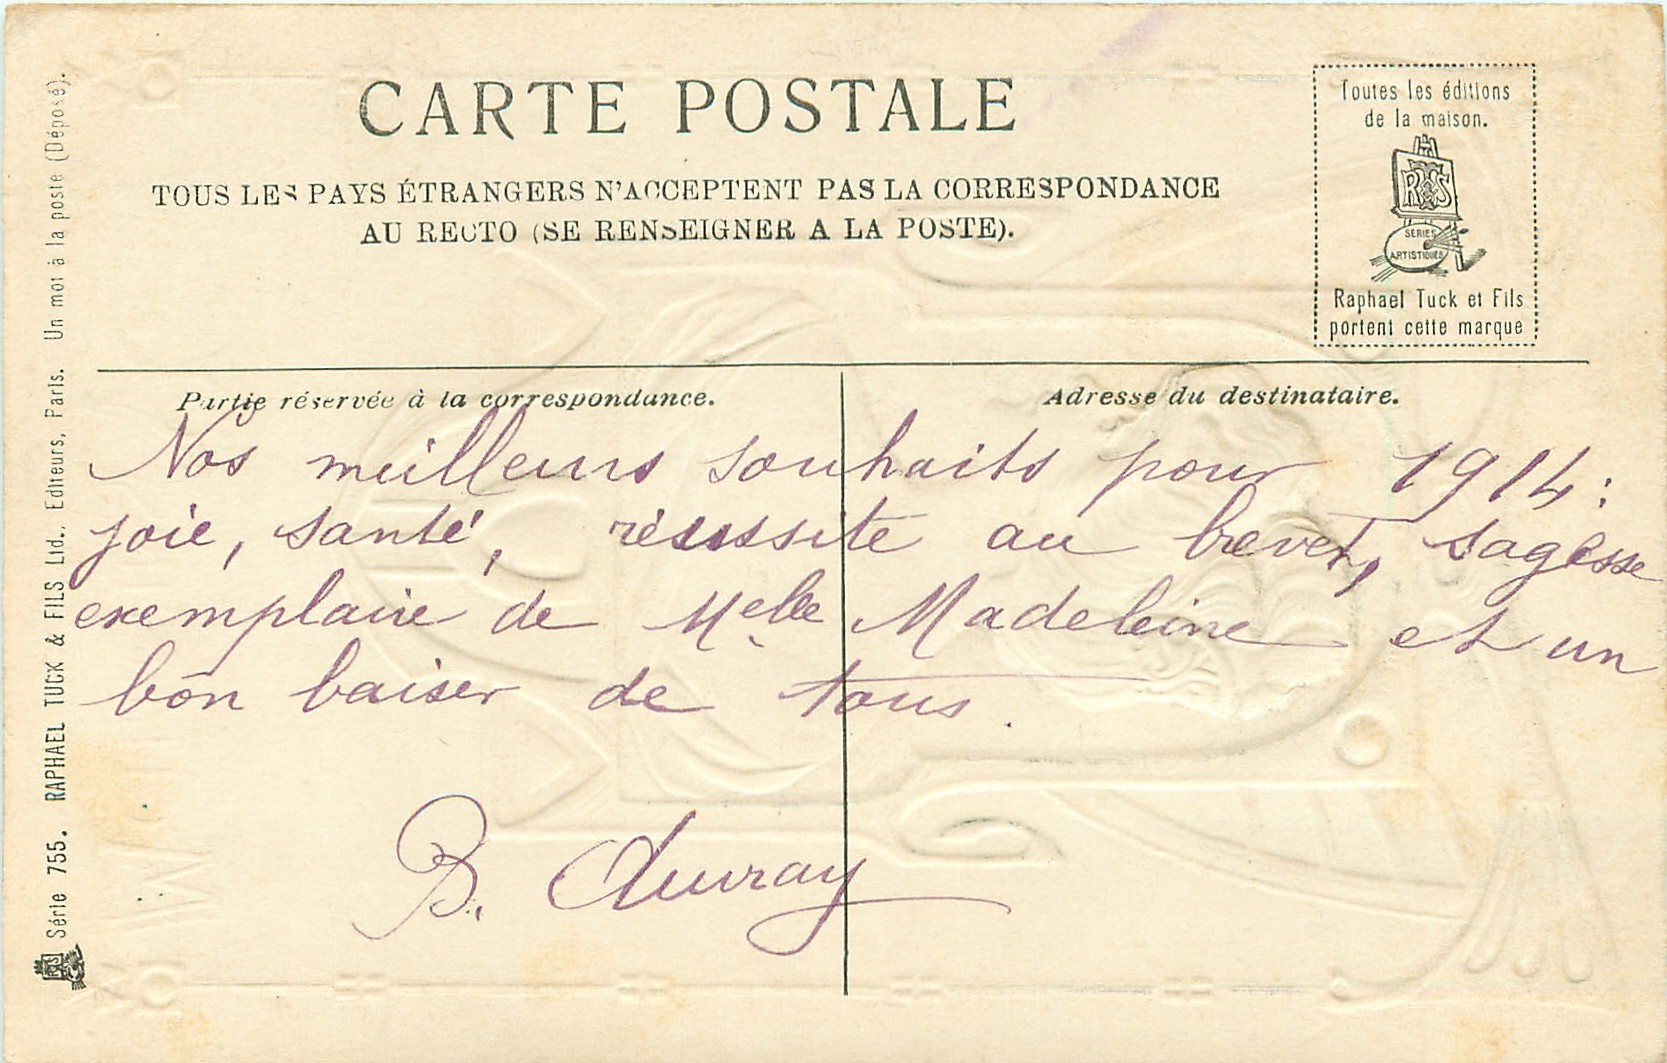 CARTE POSTALE
TOUS LES PAYS ÉTRANGERS N'ACCEPTENT PAS LA CORRESPONDANCE
AU RECTO (SE RENSEIGNER A LA POSTE).
Toutes les éditions
de la maison.
SERIES
ARTISTIQUES
Raphael Tuck et Fils
portent cette marque
Partie réservée à la correspondance.
Adresse du destinataire.
Nos meilleurs souhaits pour 1914 :
joie, santé, réussite au brevet, sagesse
exemplaire de Melle Madeleine et un
bon baiser de tous.
B.
Série 755. RAPHAEL TUCK & FILS Ltd., Editeurs, Paris. Un mot à la poste (Déposé).